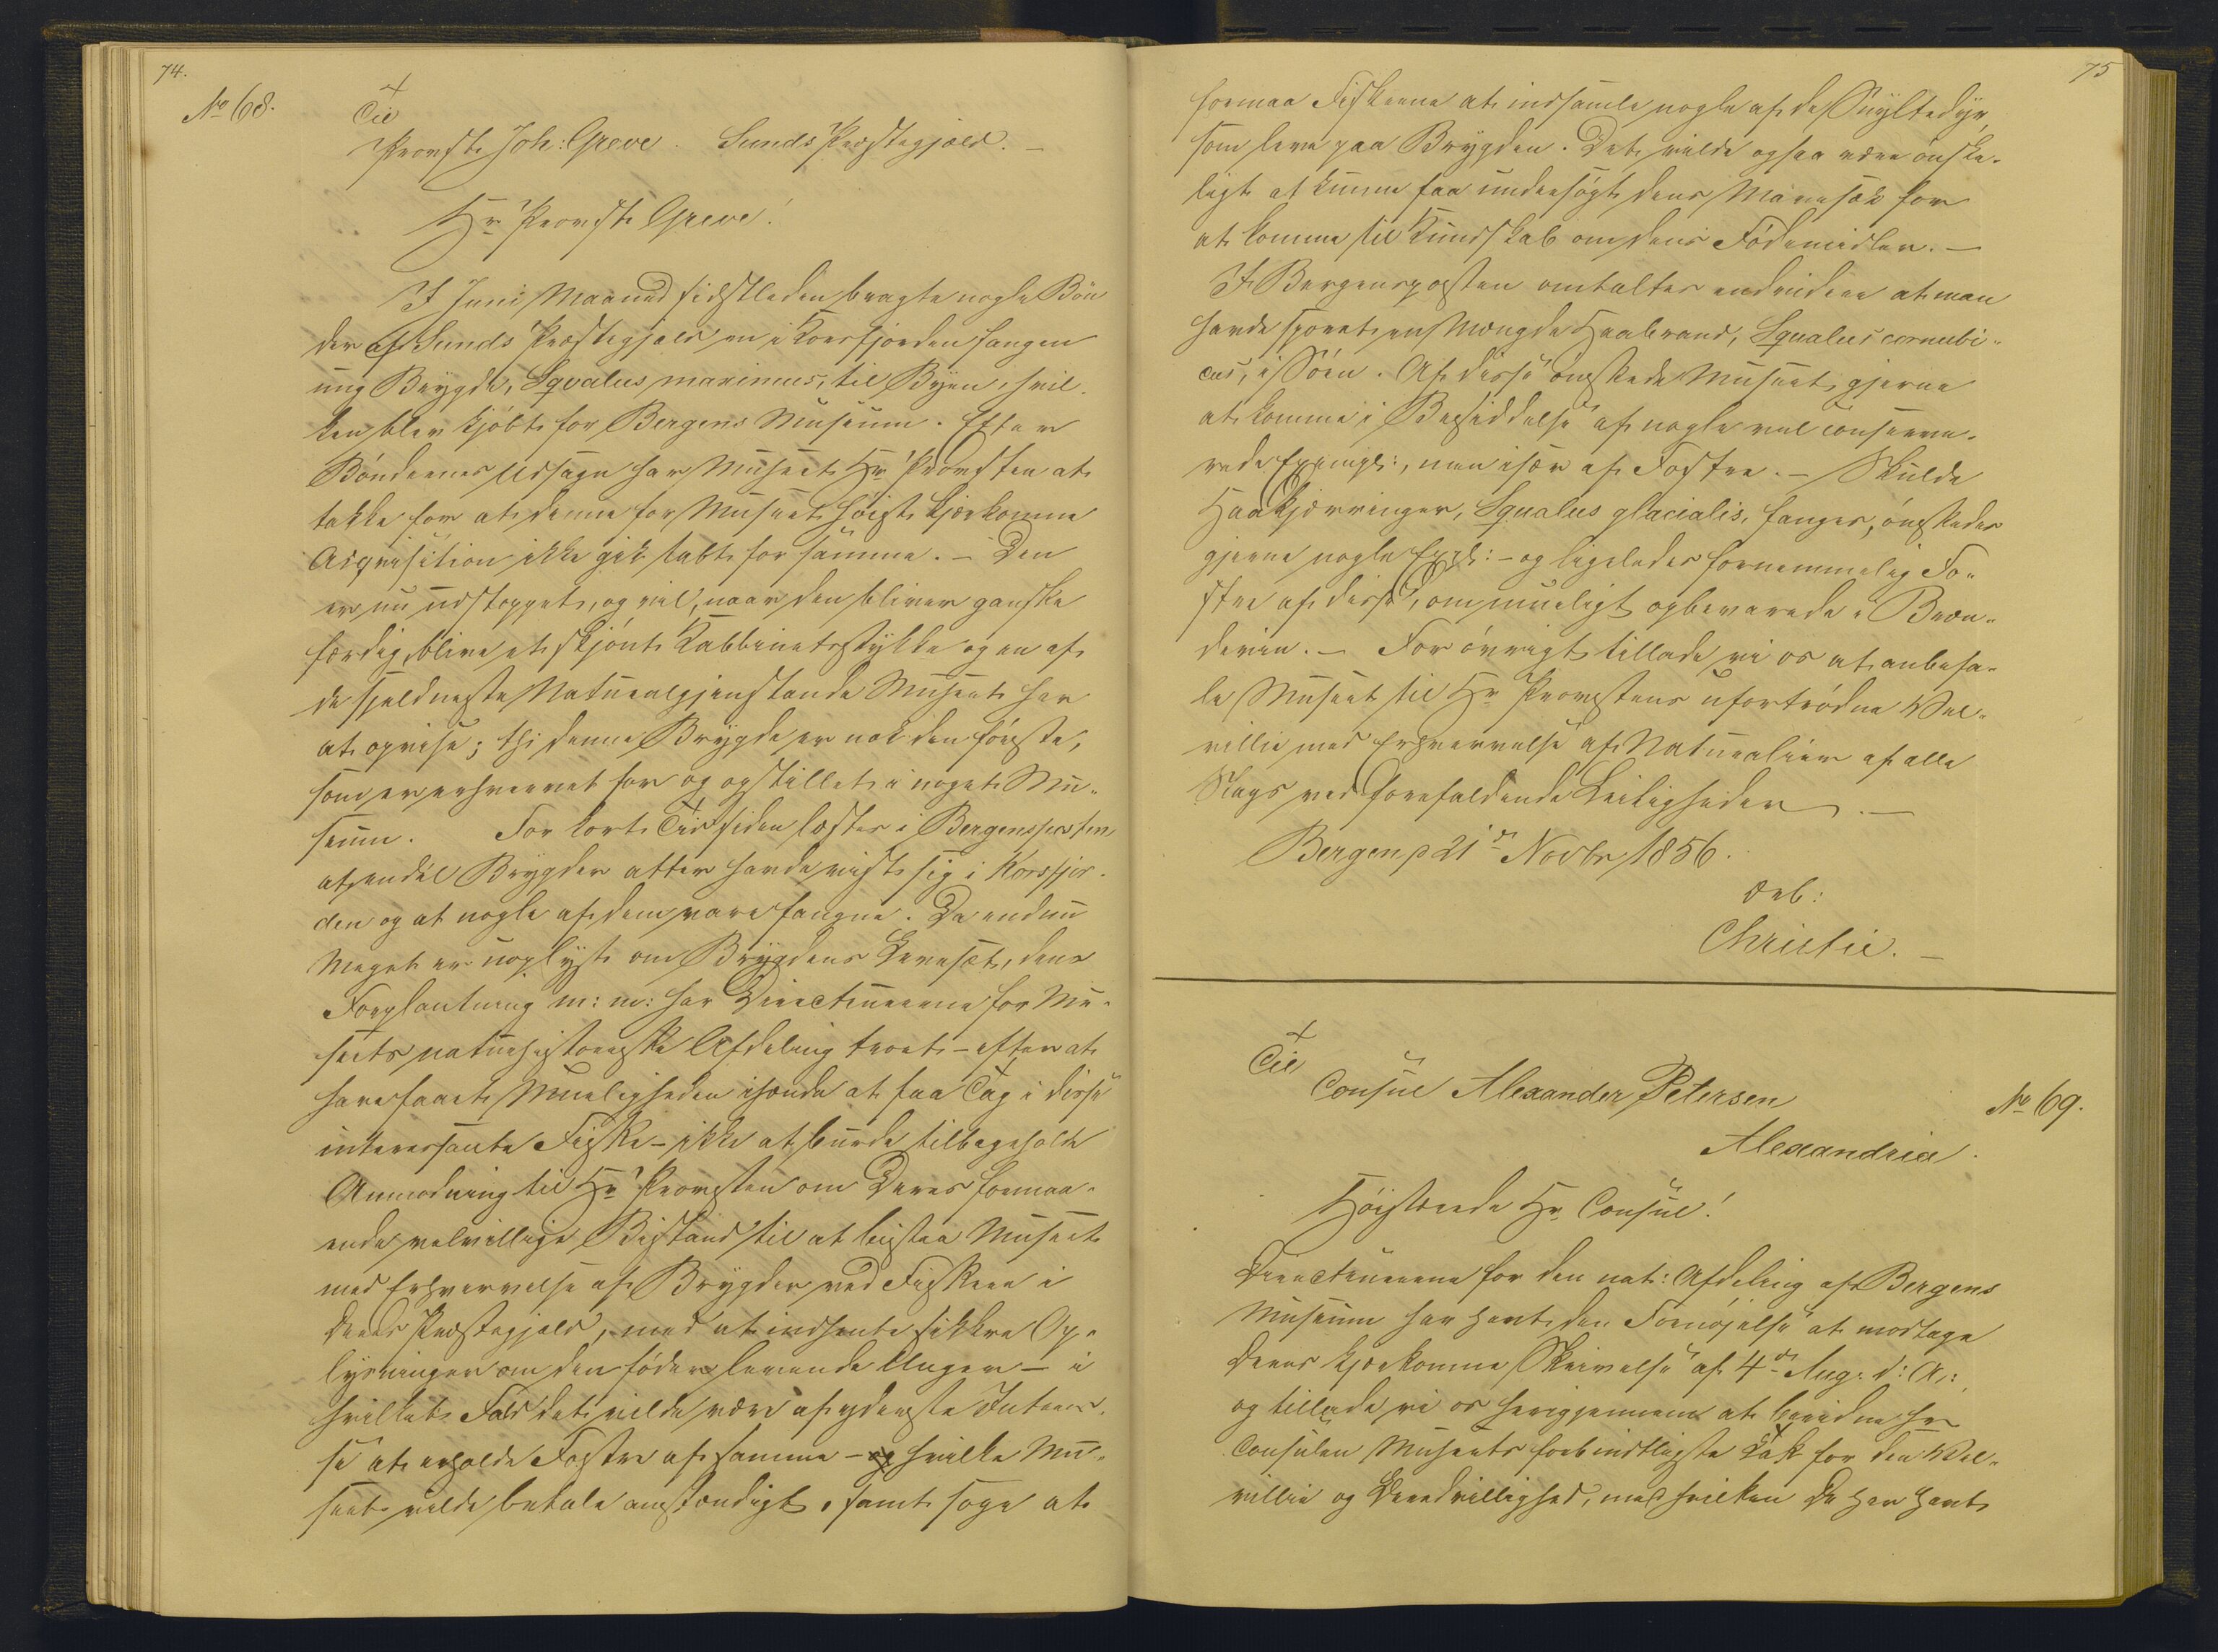 74.
No 68.
Til
Provst Joh: Greve. Sunds Præstegjæld. —
Hr Provst Greve!
I Juni Maaned sidstleden bragte nogle Bön
der af Sunds Præstegjæld en i Korsfjorden fangen
ung Brygde, Sqvalus maximus, til Byen, hvil-
ken blev kjöbt for Bergens Museum. Efter
Böndernes Udsagn har Museet Hr Provsten at
takke for at denne for Museet höist kjærkomne
Acqvisition ikke gik tabt for samme. — Den
er nu udstoppet, og vil, naar den bliver ganske
færdig, blive et skjönt Kabbinetsstykke og en af
de sjeldneste Naturalgjenstande Museet har
at opvise; thi denne Brygde er nok den förste,
som er erhvervet for og opstillet i noget Mu-
seum. For kort Tid siden læstes i Bergensposten,
at endel Brygder atter havde viist sig i Korsfjor-
den og at nogle af dem vare fangne. Da endnu
Meget er uoplyst om Brygdens Levesæt, dens
Forplantning m: m: har Directeurerne for Mu-
seets naturhistoriske Afdeling troet — efter at
have faaet Mueligheden ihænde at faa Tag i disse
interessante Fiske — ikke at burde tilbageholde
Anmodning til Hr Provsten om Deres formaa-
ende velvillige Bistand til at bistaa Museet
med Erhvervelse af Brygder ved Fiskere i
Deres Præstegjæld, med at indhente sikkre Op-
lysninger om den föder levende Unger — i
hvilket Fald det vilde være af yderste Interes-
se at erholde Fostre af samme — og hvilke Mu-
seet vilde betale anstændigt, samt söge at
75
formaa Fiskerne at indsamle nogle af de Snyltedyr,
som leve paa Brygden. Det vilde ogsaa være önske-
ligt at kunne faa undersögt dens Mavesæk for
at komme til Kundskab om dens Födemidler. —
I Bergensposten omtaltes endvidere at man
havde sporet en Mængde Haabrand, Squalus cornubi-
cus, i Söen. Af disse önskede Museet gjerne
at komme i Besiddelse af nogle vel conserve-
rede Exempl:, men især af Fostre. — Skulde
Haakjærringer, Squalus glacialis, fanges, önskedes
gjerne nogle Expl: — og ligeledes fornemmelig Fo-
stre af disse, om mueligt opbevarede i Bræn-
deviin. — For övrigt tillade vi os at anbefa-
le Museet til Hr Provstens ufortrödne Vel-
villie med Erhvervelse af Naturalier af alle
Slags ved forefaldende Leiligheder. —
Bergen p 21de Novbr 1856.
ærb:
Christie. —
Til
Consul Alexander Petersen
Alexandria.
No 69.
Höistærede Hr Consul!
Directeurerne for den nat: Afdeling af Bergens
Museum har havt den Fornöjelse at modtage
Deres kjærkomne Skrivelse af 4de Aug: d: A:,
og tillade vi os herigjennem at bevidne Hr
Consulen Museets forbindtligste Tak for den Vel-
villie og Beredvillighed, med hvilken De har havt